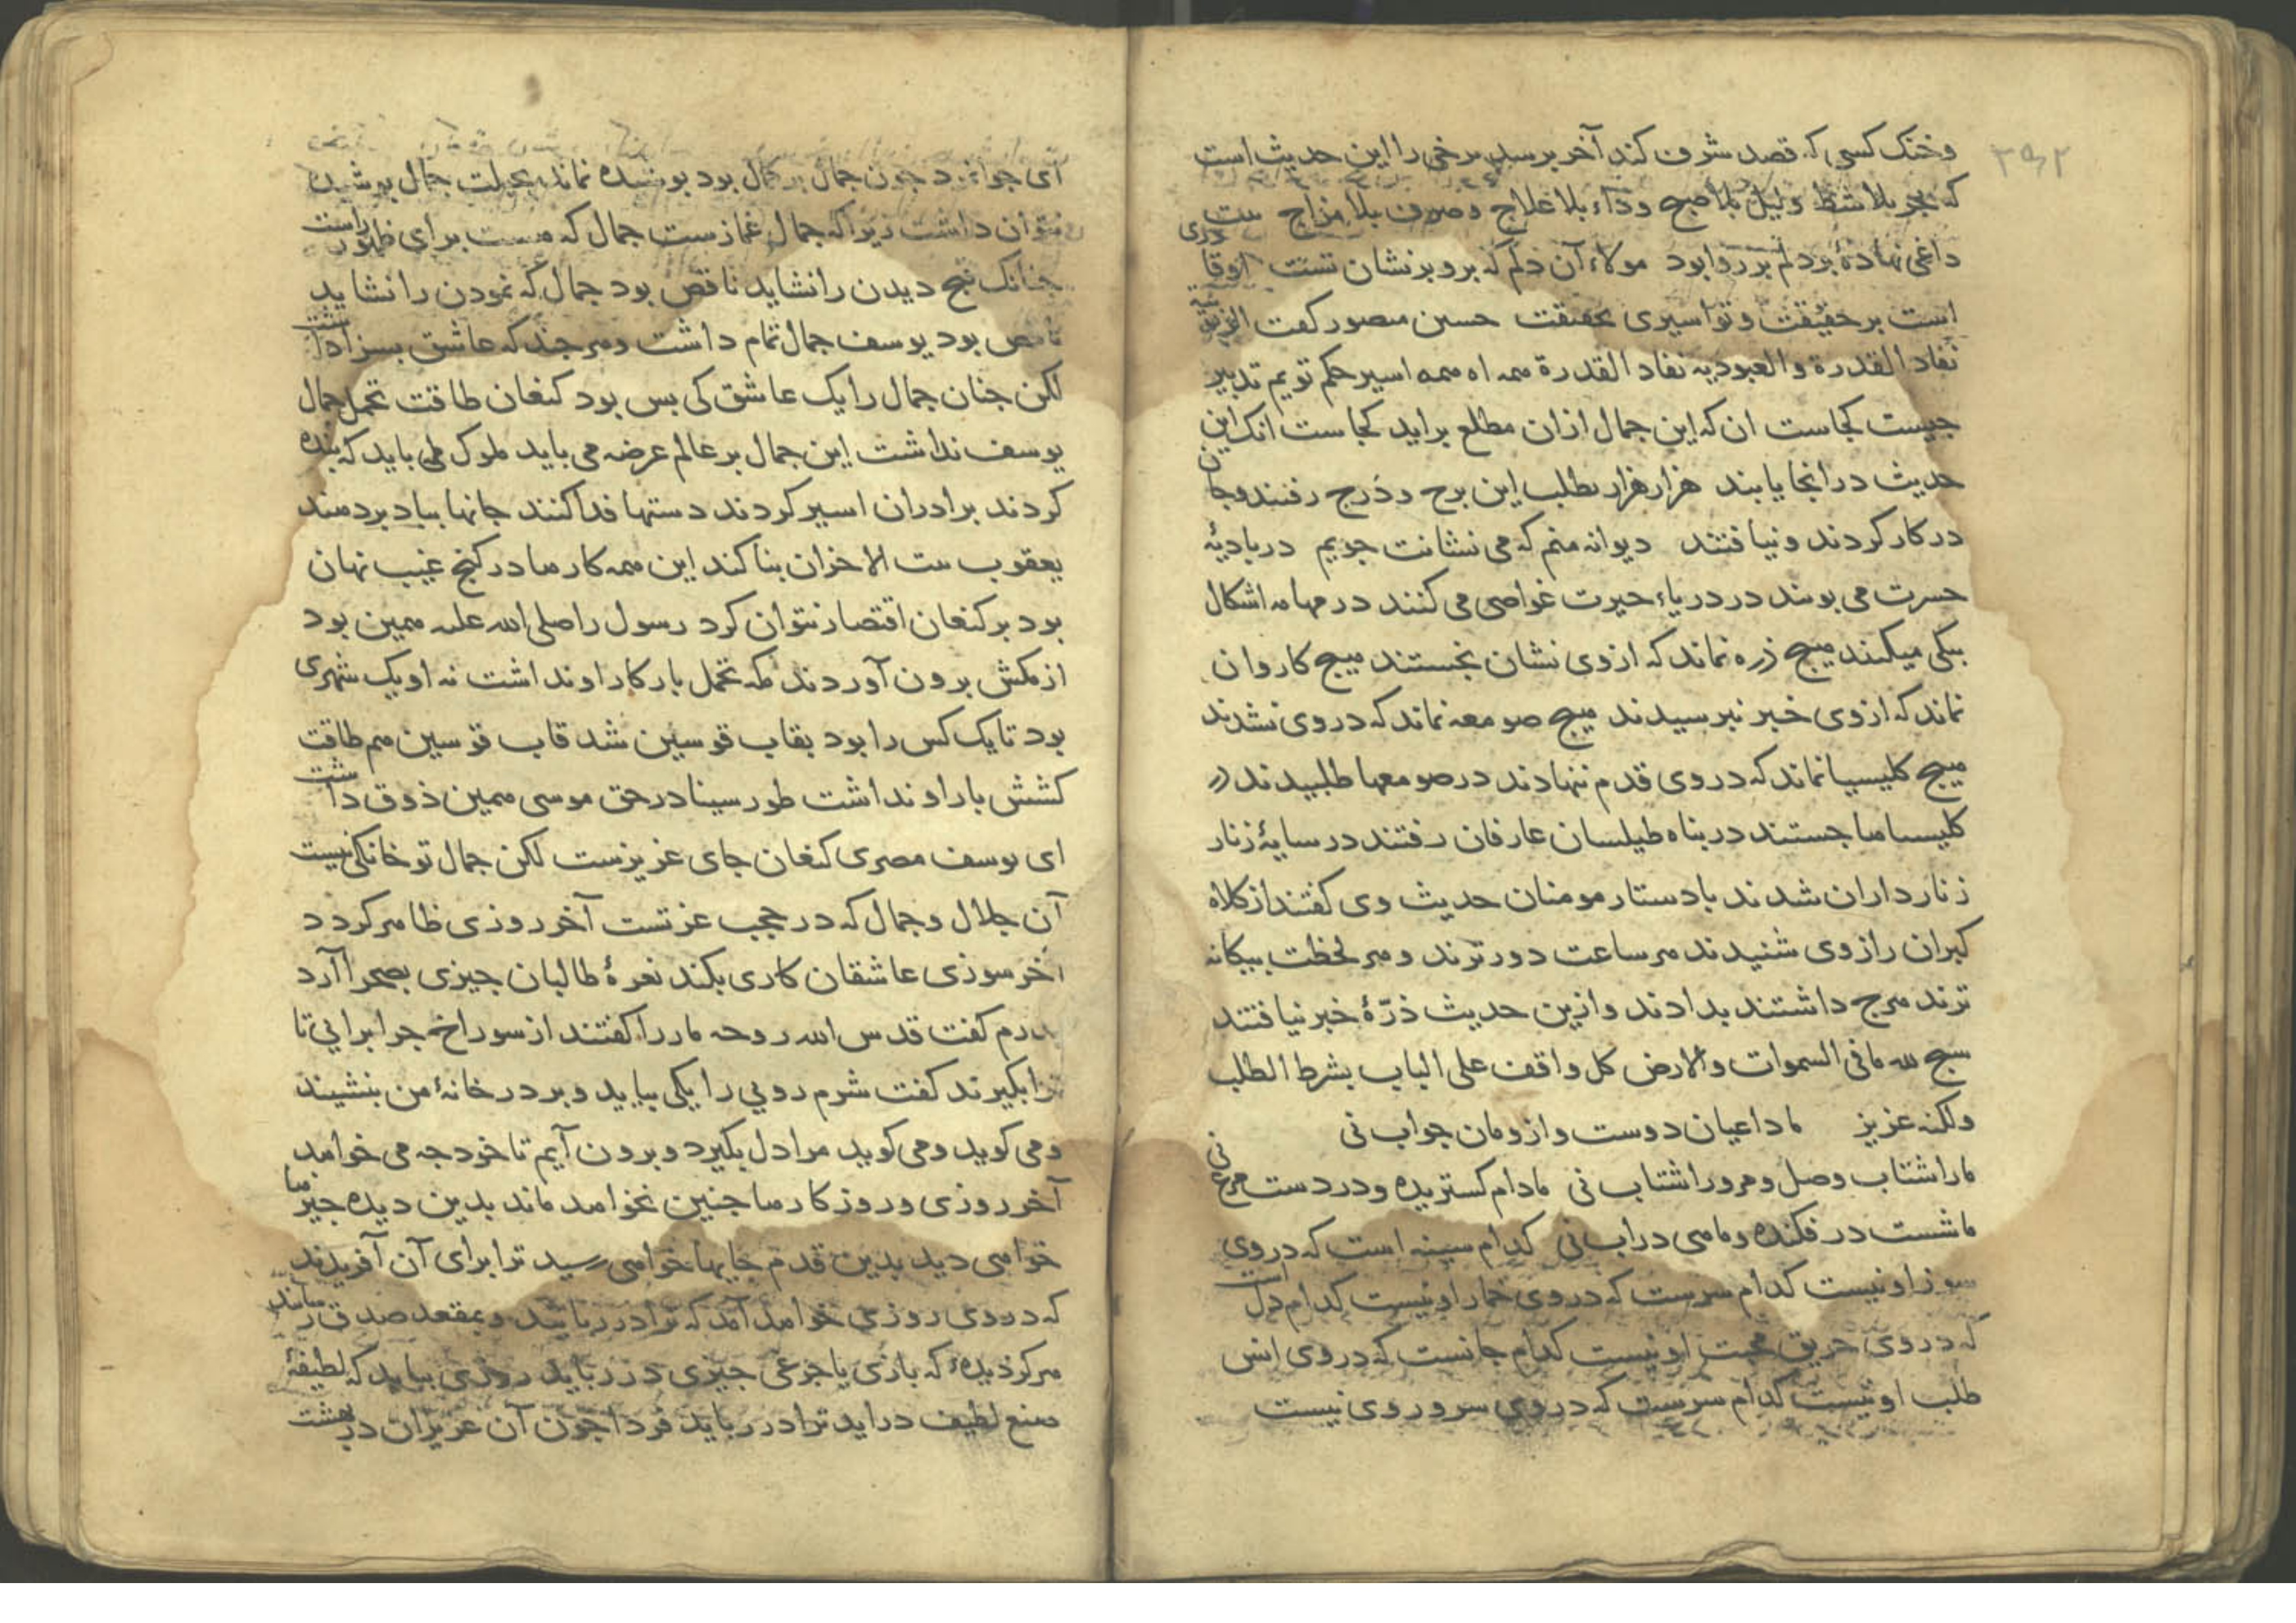 ۳۹۲
وخنک کسی که قصد شرف کند آخر برسد برخی را این حدیث است
که بحر بلا شط ولیل بلا صبح وداء بلا علاج وصرف بلا مزاج بیت
داغی نهادهٔ بر دلم بر روا بود مولاء آن دلم که برو بر نشان تست
است بر حقیقت وتو اسیری بحقیقت حسین منصور کفت الربوبیة
نفاد القدرة والعبودیه نفاد القدرة همه اه همه اسیر حکم تویم تدبیر
جیست کجاست ان که این جمال ازان مطلع براید کجاست انک این
حدیث در انجا یابند هزار هزار بطلب این برج ودرج رفتند وجان
در کار کردند ونیافتند دیوانه منم که می نشانت جویم در بادیهٔ
حسرت می بویند در دریاء حیرت غواصی می کنند در مهامه اشکال
بیکی میکنند هیج ذره نماند که ازوی نشان نجستند هیج کاروان
نماند که ازوی خبر نبرسیدند هیج صومعه نماند که دروی نشدند
هیج کلیسیا نماند که دروی قدم ننهادند در صومعها طلبیدند در
کلیسیاها جستند در بناه طیلسان عارفان رفتند در سایهٔ زنار
زنارداران شدند با دستار مومنان حدیث وی کفتند از کلاه
کبران راز وی شنیدند هر ساعت دورترند وهر لحظت بیکانه
ترند هرج داشتند بدادند وازین حدیث ذرّهٔ خبر نیافتند
سبح لله ما فی السموات والارض کل واقف علی الباب بشرط الطلب
ولکنه عزیز ما داعیان دوست وازو مان جواب نی
ما را شتاب وصل ومرورا شتاب نی ما دام کستریده ودر دست مرغ نی
ما شست در فکنده وماهی در اب نی کدام سینه است که دروی
سوز او نیست کدام سرست که دروی خمار او نیست کدام دل است
که دروی حریق محبت او نیست کدام جانست که دروی انس
طلب او نیست کدام سرست که دروی سرور وی نیست
ای جوانمرد جون جمال بر کمال بود بوشیده نماند بحیلت جمال بوشیده
نتوان داشت زیرا که جمال غمازست جمال که هست برای ظهور راست
جنانک قبح دیدن را نشاید ناقص بود جمال که نمودن را نشاید
ناقص بود یوسف جمال تمام داشت وهر جند که عاشق بسزا داشت
لکن جنان جمال را یک عاشق کی بس بود کنعان طاقت تحمل جمال
یوسف نداشت این جمال بر عالم عرضه می باید ملوک می باید که بنده
کردند برادران اسیر کردند دستها فدا کنند جانها بباد بر دهند
یعقوب بیت الاحزان بنا کند این همه کارها در کنج غیب نهان
بود بر کنعان اقتصار نتوان کرد رسول را صلی الله علیه همین بود
از مکش برون آوردند مکه تحمل بار کار او نداشت نه او یک شهری
بود تا یک کس را بود بقاب قوسین شد قاب قوسین هم طاقت
کشش بار او نداشت طور سینا در حق موسی همین ذوق داشت
ای یوسف مصری کنعان جای عزیزست لکن جمال تو خانکی نیست
آن جلال وجمال که در حجب عزتست آخر روزی ظاهر کردد
آخر سوزی عاشقان کاری بکند نعرهٔ طالبان جیزی بصحرا آرد
بدرم کفت قدس الله روحه مار را کفتند از سوراخ جرا برایی تا
ترا بکیرند کفت شرم رویی را یکی بیاید وبر در خانهٔ من بنشیند
ومی کوید ومی کوید مرا دل بکیرد وبرون آیم تا خود جه می خواهد
آخر روزی وروزکارها جنین نخواهد ماند بدین دیده جیزها
خواهی دید بدین قدم جایها خواهی رسید ترا برای آن آفریدند
که دروی روزی خواهد آمد که ترا در ربایند وبمقعد صدق رسانند
هرکز دیدهٔ که بازی یا جرغی جیزی در رباید روزی بیاید که لطیفهٔ
صنع لطیف دراید ترا در رباید فردا جون آن عزیزان در بهشت